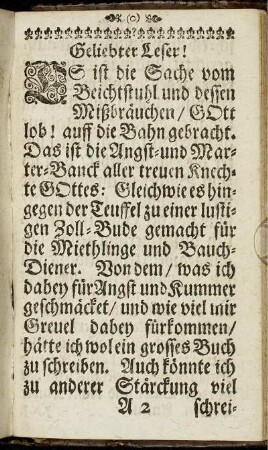 (o)
Geliebter Leser!
ES ist die Sache vom
Beichtstuhl und dessen
Mißbräuchen/ GOtt
lob! auff die Bahn gebracht.
Das ist die Angst-und Mar-
ter-Banck aller treuen Knech-
te GOttes: Gleichwie es hin-
gegen der Teuffel zu einer lusti-
gen Zoll-Bude gemacht für
die Miethlinge und Bauch-
Diener. Von dem/ was ich
dabey für Angst und Kummer
geschmäcket/ und wie viel mir
Greuel dabey fürkommen/
hätte ich wol ein grosses Buch
zu schreiben. Auch könnte ich
zu anderer Stärckung viel
A 2 schrei-